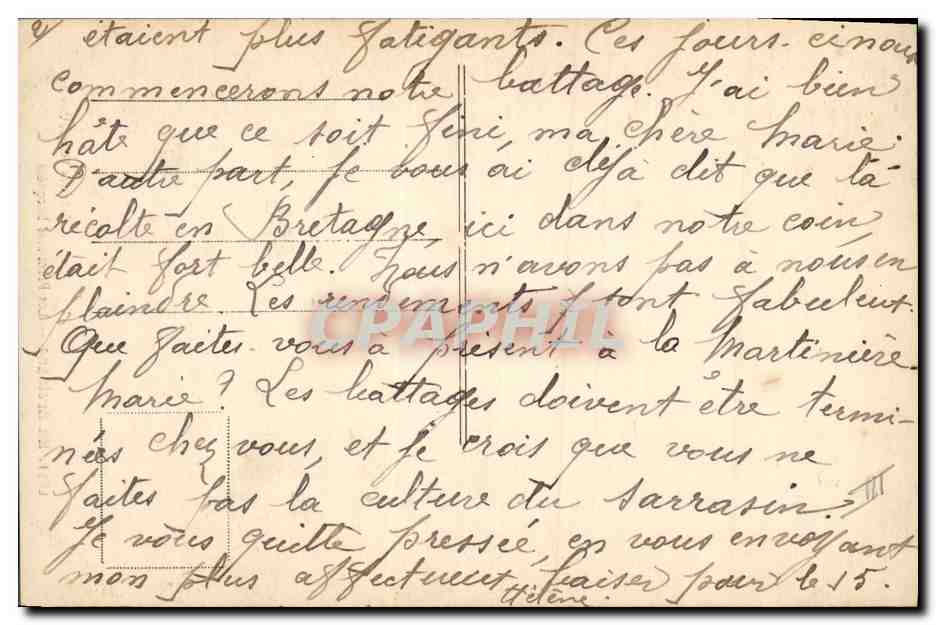 2/ étaient plus fatigants. Ces jours-ci nous
commencerons notre battage. J'ai bien
hâte que ce soit fini, ma chère Marie.
D'autre part, je vous ai déjà dit que la
récolte en Bretagne, ici dans notre coin,
était fort belle. Nous n'avons pas à nous en
plaindre. Les rendements sont fabuleux.
CPAPHIL
Que faites-vous à présent à la Martinière
Marie? Les battages doivent être termi-
nées chez vous, et je crois que vous ne
faites pas la culture du sarrasin.
Je vous quitte pressée, en vous envoyant
mon plus affectueux baiser pour le 15.
Hélène.